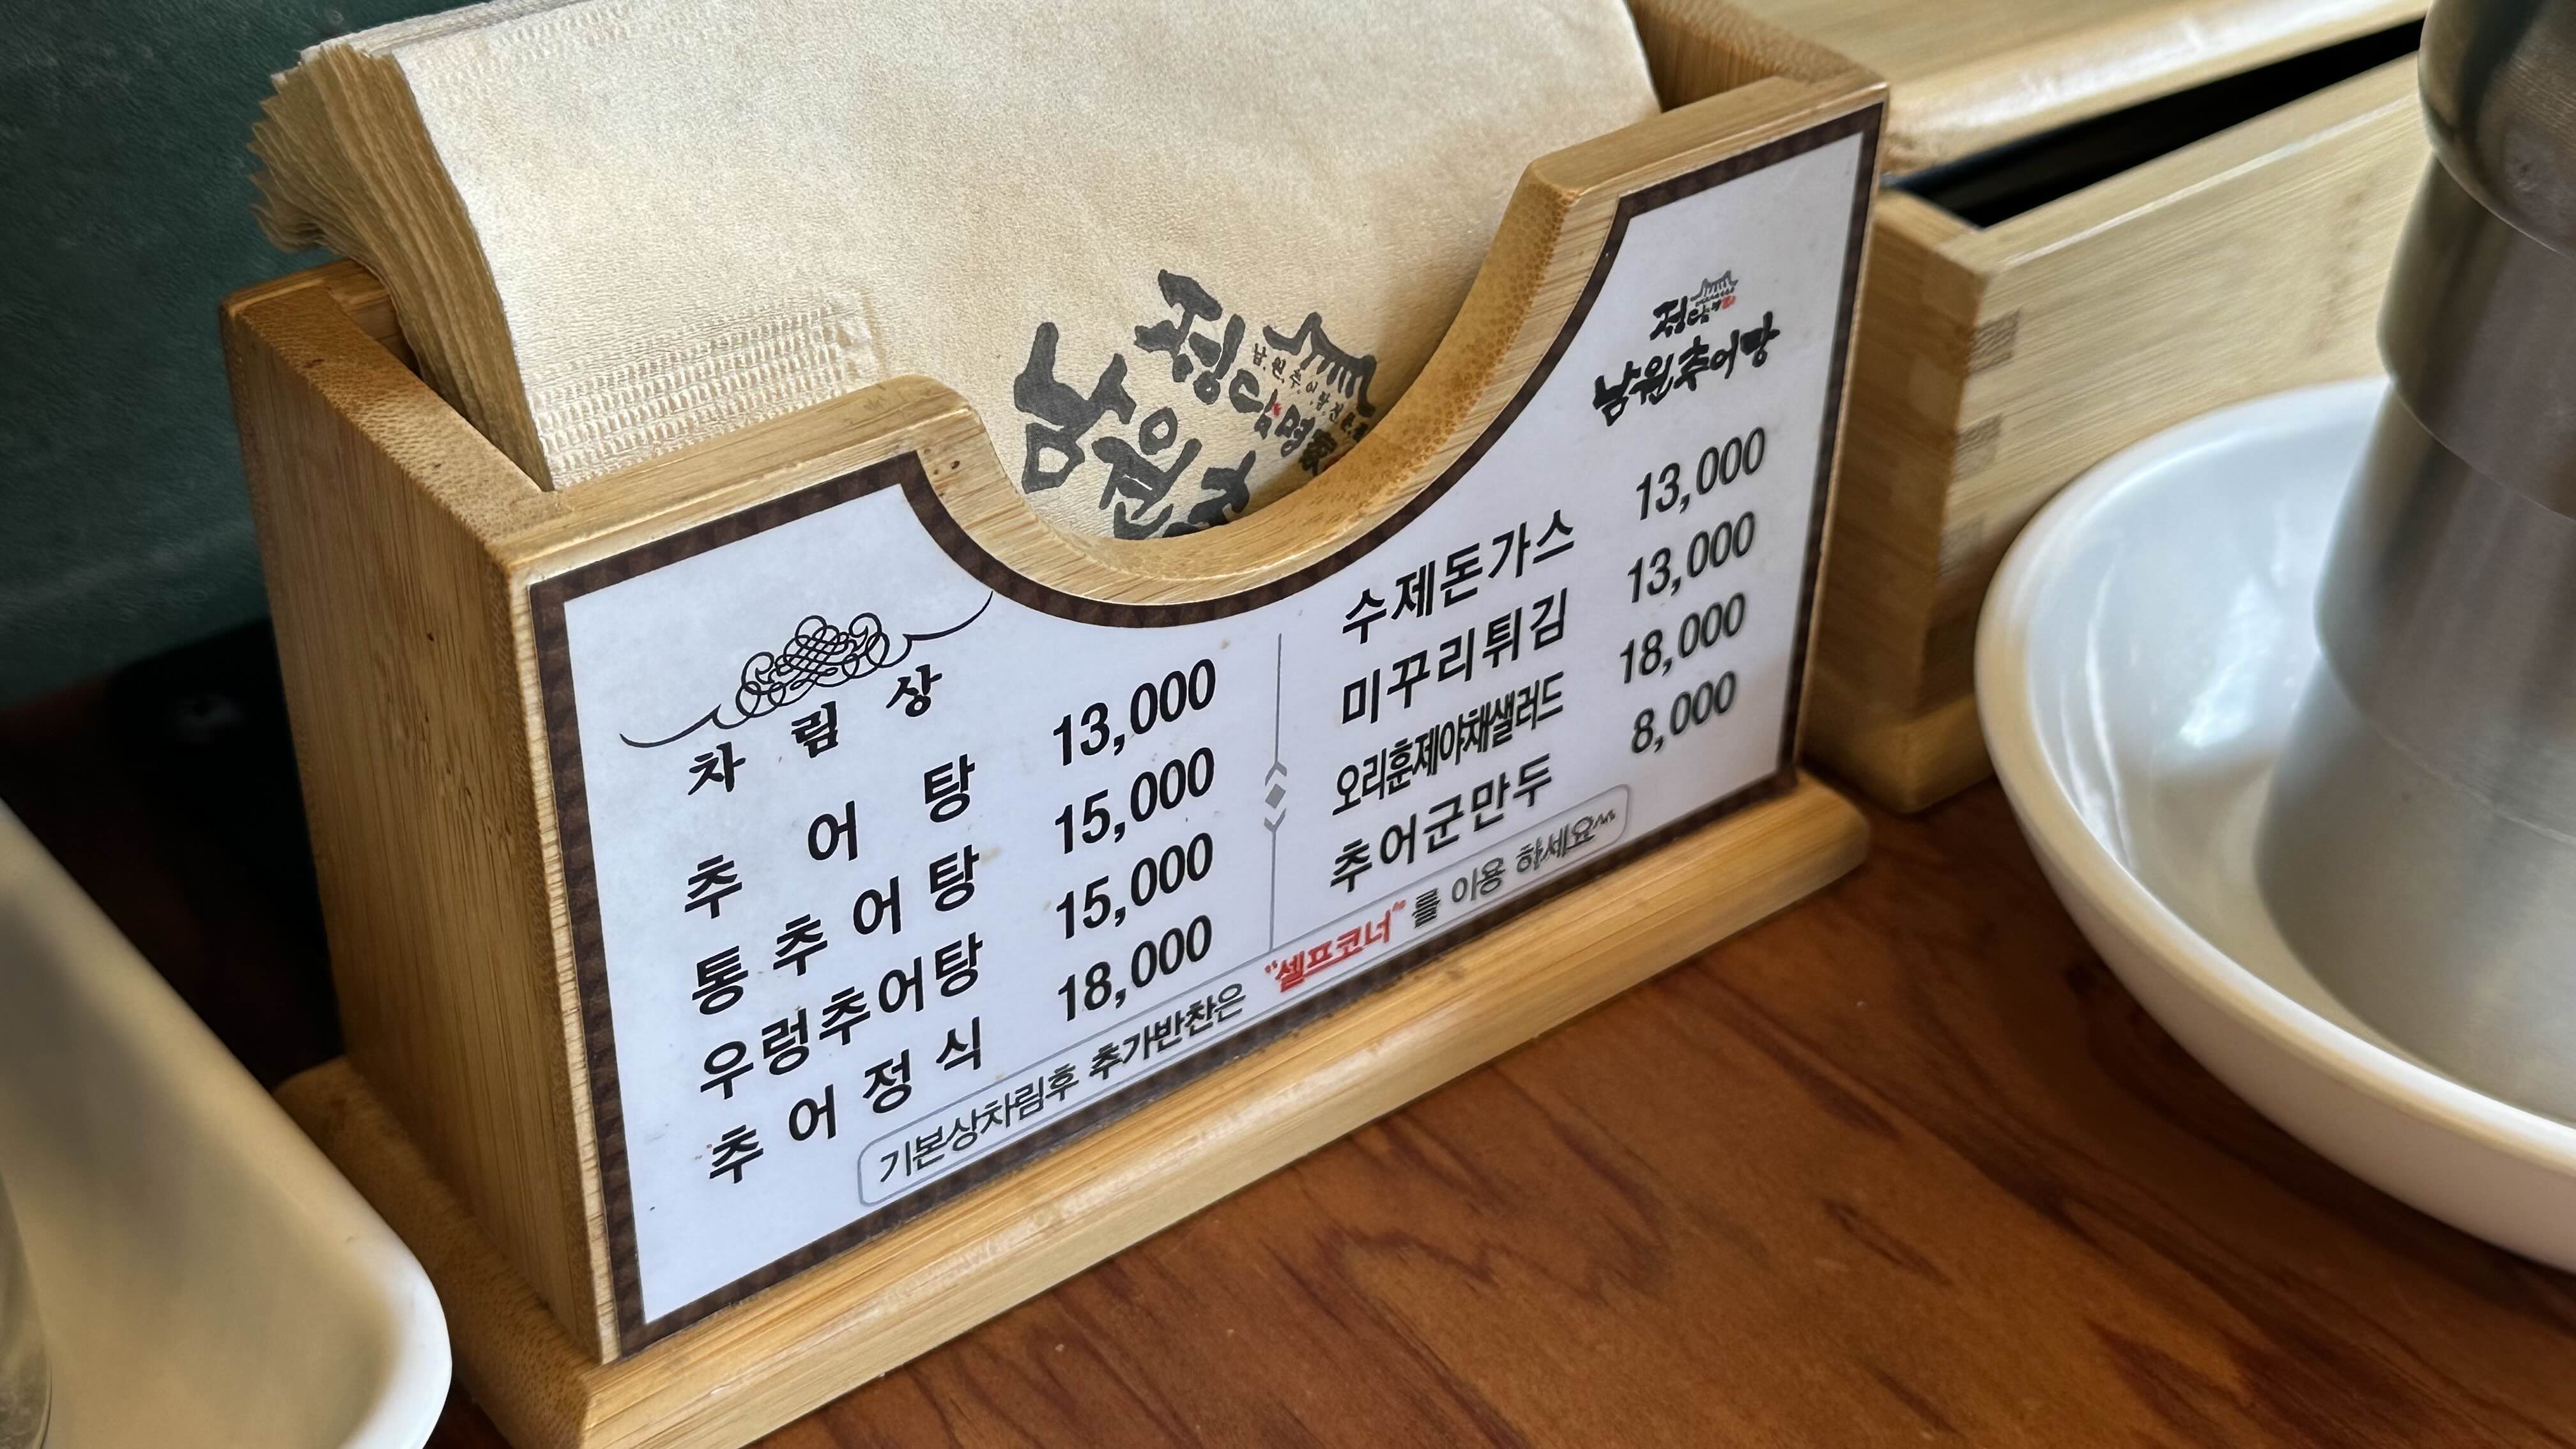 차림상
추어탕 13,000
통추어탕 15,000
우렁추어탕 15,000
추어정식 18,000
남원추어탕
수제돈가스 13,000
미꾸리튀김 13,000
오리훈제야채샐러드 18,000
추어군만두 8,000
기본상차림후 추가반찬은 "셀프코너"를 이용 하세요^^